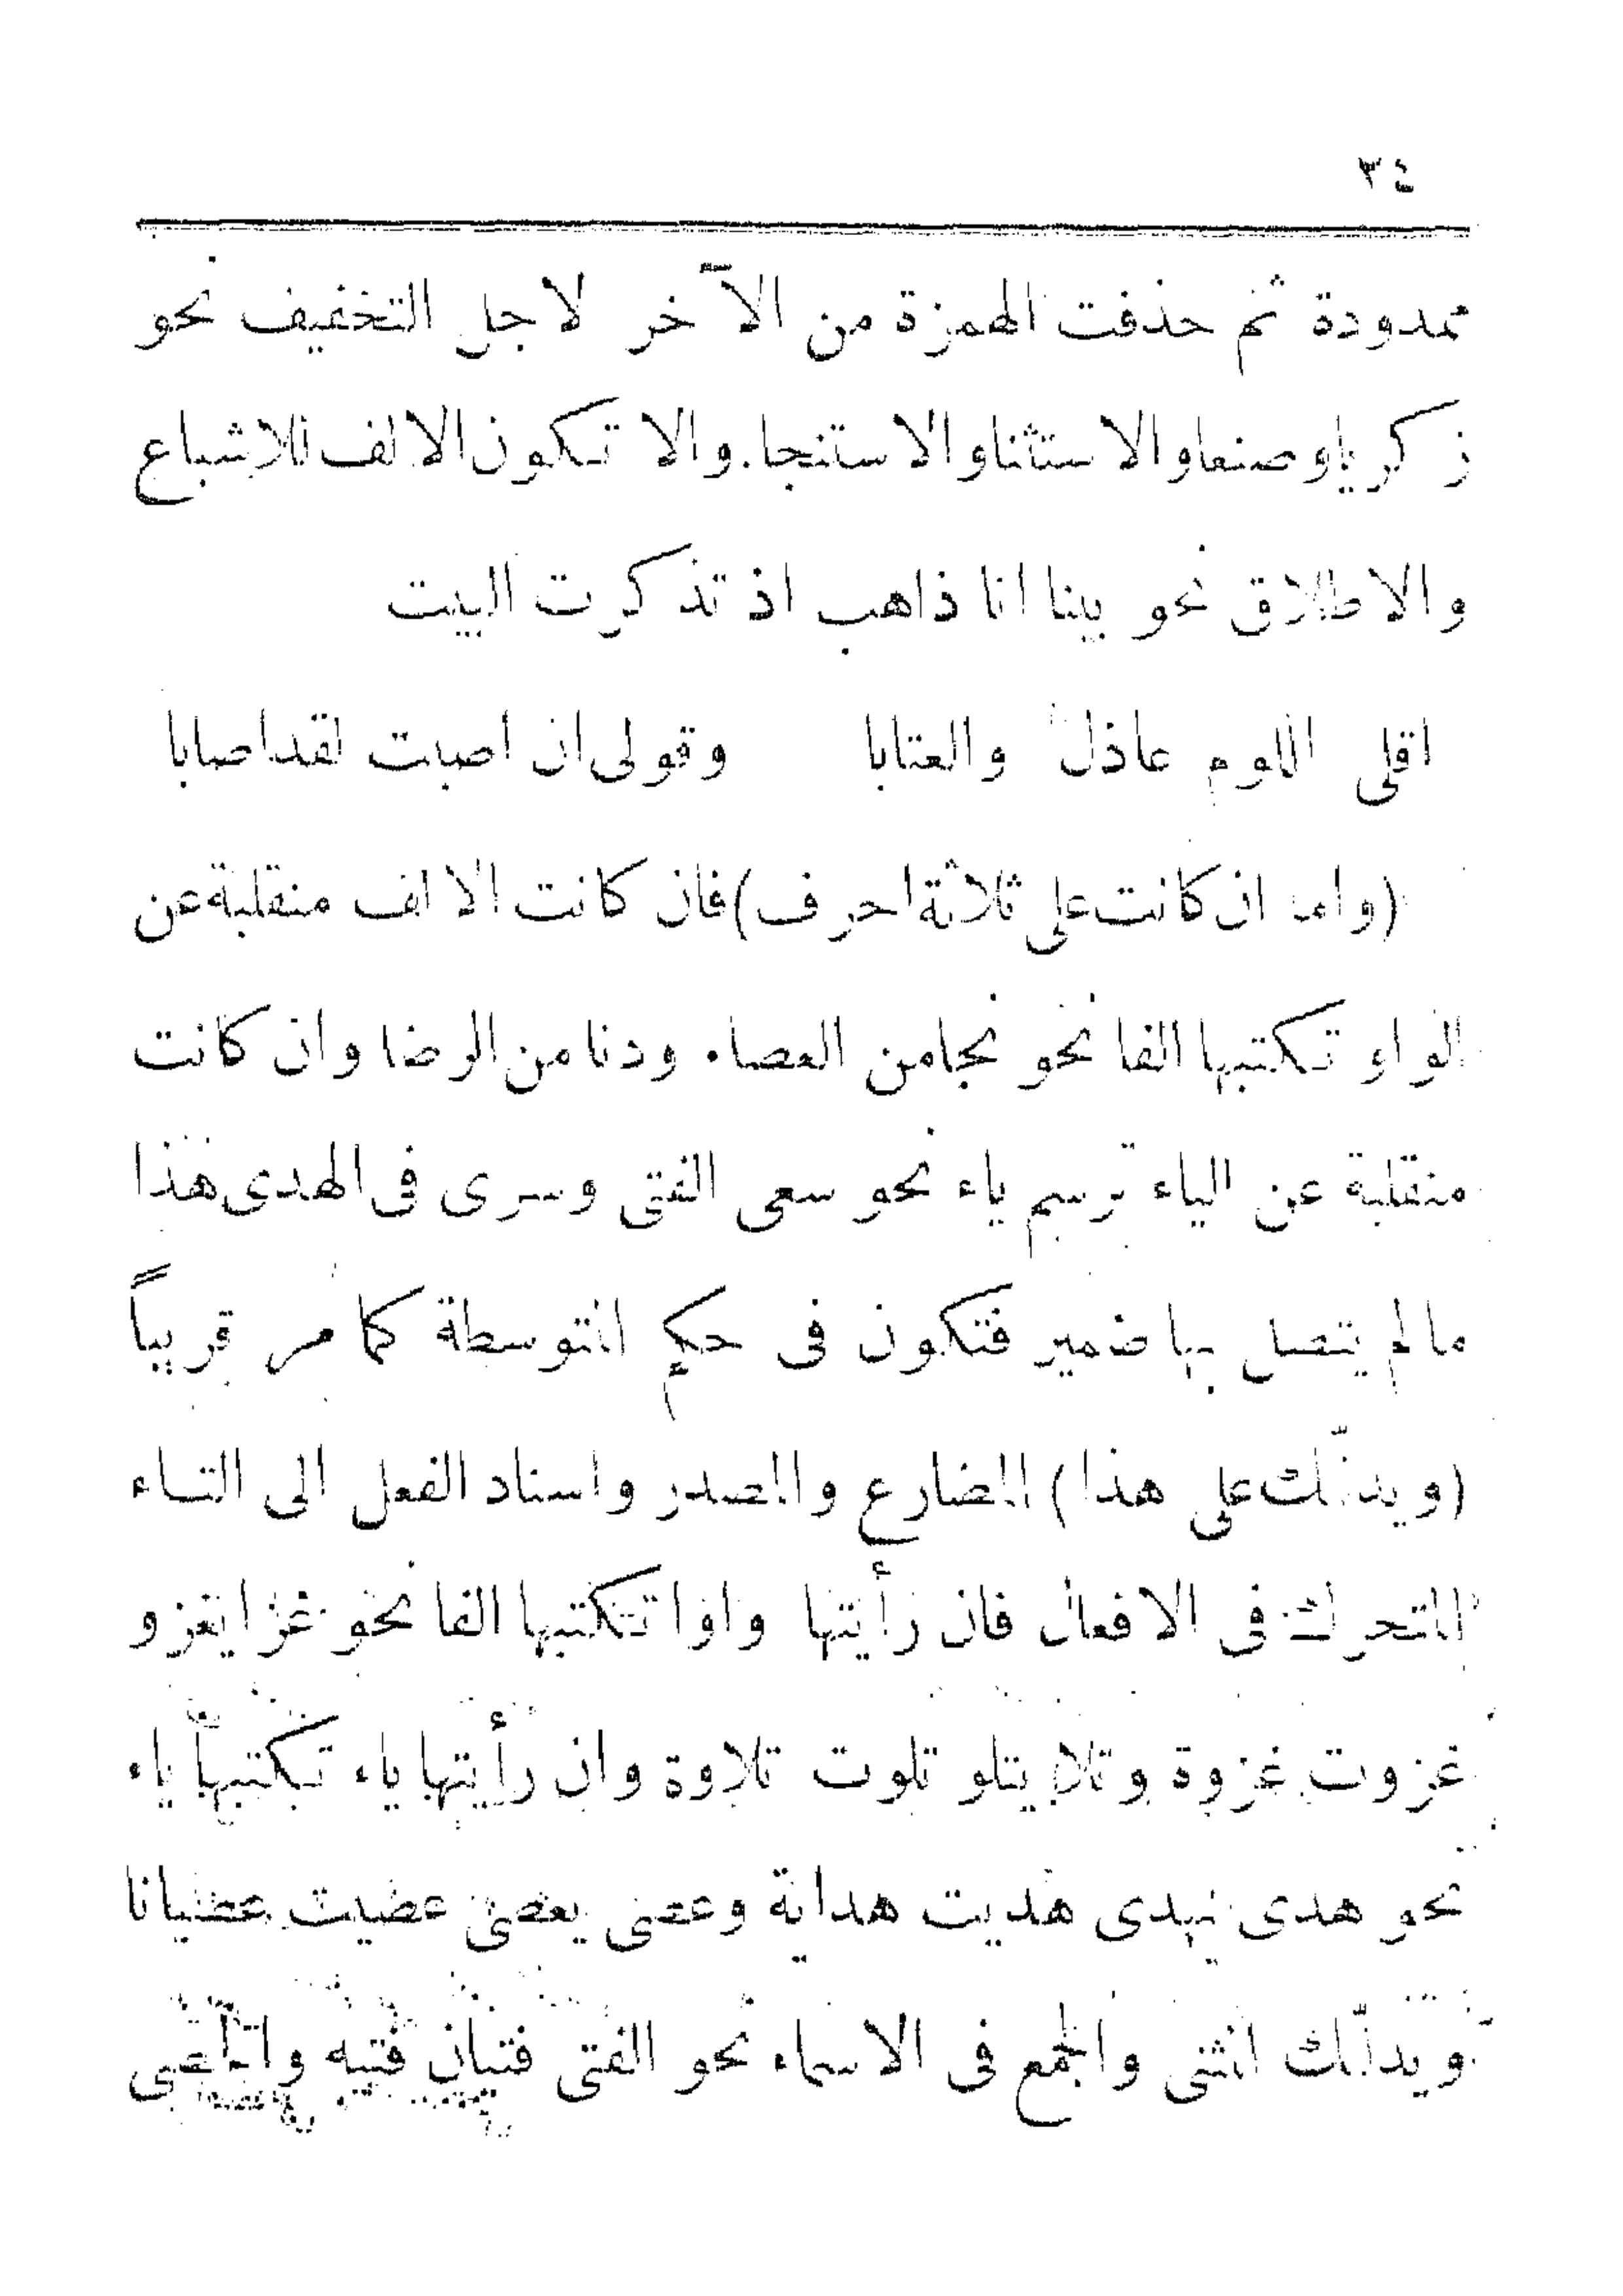 ٣٤
ممدودة ثم حذفت الهمزة من الآخر لاجل التخفيف نحو
زكريا وصنعا والاستثنا والاستنجا. والا تكون الالف للاشباع
والاطلاق نحو بينا انا ذاهب اذ تذكرت البيت
اقلى اللوم عاذل والعتابا وقولى ان اصبت لقد اصابا
(واما ان كانت على ثلاثة احرف) فان كانت الالف منقلبة عن
الواو تكتبها الفا نحو نجا من العصا. ودنا من الرضا وان كانت
منقلبة عن الياء ترسم ياء نحو سعى الفتى وسرى فى الهدى هذا
ما لم يتصل بها ضمير فتكون فى حكم المتوسطة كما مر قريباً
(ويدلّك على هذا) المضارع والمصدر واسناد الفعل الى التاء
المتحرك فى الافعال فان رأيتها واوا تكتبها الفا نحو غزا يغزو
غزوت غزوة وتلا يتلو تلوت تلاوة وان رأيتها ياء تكتبها ياء
نحو هدى يهدى هديت هداية وعصى يعصى عصيت عصيانا
ويدلّك المثنى والجمع فى الاسماء نحو الفتى فتيان فتيه